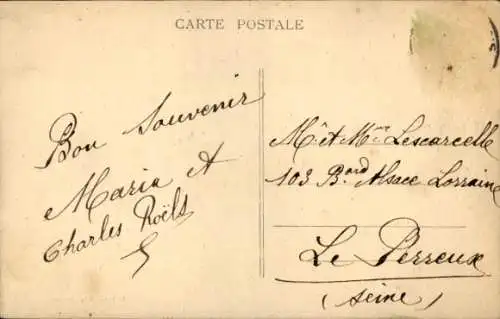 CARTE POSTALE
Bon Souvenir
Maria et
Charles Roëls
Mr et Mme Lescarcelle
103 Bard Alsace Lorraine
Le Perreux
(Seine)